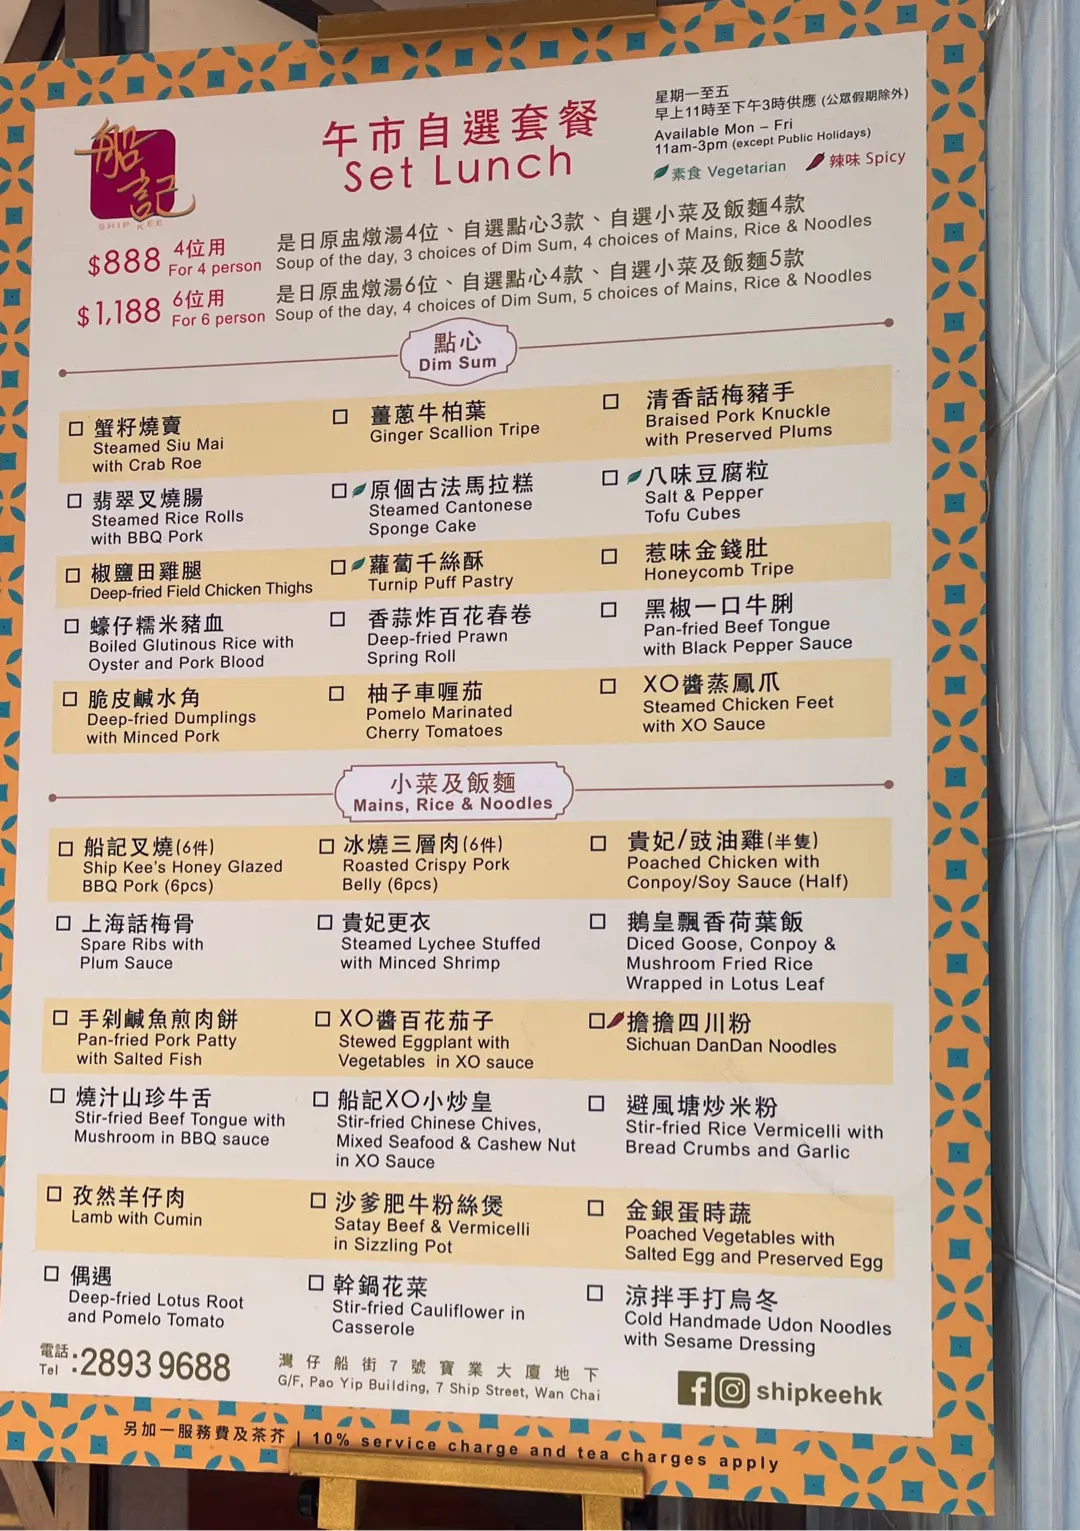 船記
SHIP KEE
午市自選套餐
Set Lunch
星期一至五
早上11時至下午3時供應 (公眾假期除外)
Available Mon – Fri
11am-3pm (except Public Holidays)
素食 Vegetarian 辣味 Spicy
$888 4位用 For 4 person
是日原盅燉湯4位、自選點心3款、自選小菜及飯麵4款
Soup of the day, 3 choices of Dim Sum, 4 choices of Mains, Rice & Noodles
$1,188 6位用 For 6 person
是日原盅燉湯6位、自選點心4款、自選小菜及飯麵5款
Soup of the day, 4 choices of Dim Sum, 5 choices of Mains, Rice & Noodles
點心
Dim Sum
蟹籽燒賣
Steamed Siu Mai
with Crab Roe
薑蔥牛柏葉
Ginger Scallion Tripe
清香話梅豬手
Braised Pork Knuckle
with Preserved Plums
翡翠叉燒腸
Steamed Rice Rolls
with BBQ Pork
原個古法馬拉糕
Steamed Cantonese
Sponge Cake
八味豆腐粒
Salt & Pepper
Tofu Cubes
椒鹽田雞腿
Deep-fried Field Chicken Thighs
蘿蔔千絲酥
Turnip Puff Pastry
惹味金錢肚
Honeycomb Tripe
蠔仔糯米豬血
Boiled Glutinous Rice with
Oyster and Pork Blood
香蒜炸百花春卷
Deep-fried Prawn
Spring Roll
黑椒一口牛脷
Pan-fried Beef Tongue
with Black Pepper Sauce
脆皮鹹水角
Deep-fried Dumplings
with Minced Pork
柚子車喱茄
Pomelo Marinated
Cherry Tomatoes
XO醬蒸鳳爪
Steamed Chicken Feet
with XO Sauce
小菜及飯麵
Mains, Rice & Noodles
船記叉燒(6件)
Ship Kee's Honey Glazed
BBQ Pork (6pcs)
冰燒三層肉(6件)
Roasted Crispy Pork
Belly (6pcs)
貴妃/豉油雞(半隻)
Poached Chicken with
Conpoy/Soy Sauce (Half)
上海話梅骨
Spare Ribs with
Plum Sauce
貴妃更衣
Steamed Lychee Stuffed
with Minced Shrimp
鵝皇飄香荷葉飯
Diced Goose, Conpoy &
Mushroom Fried Rice
Wrapped in Lotus Leaf
手剁鹹魚煎肉餅
Pan-fried Pork Patty
with Salted Fish
XO醬百花茄子
Stewed Eggplant with
Vegetables in XO sauce
擔擔四川粉
Sichuan DanDan Noodles
燒汁山珍牛舌
Stir-fried Beef Tongue with
Mushroom in BBQ sauce
船記XO小炒皇
Stir-fried Chinese Chives,
Mixed Seafood & Cashew Nut
in XO Sauce
避風塘炒米粉
Stir-fried Rice Vermicelli with
Bread Crumbs and Garlic
孜然羊仔肉
Lamb with Cumin
沙爹肥牛粉絲煲
Satay Beef & Vermicelli
in Sizzling Pot
金銀蛋時蔬
Poached Vegetables with
Salted Egg and Preserved Egg
偶遇
Deep-fried Lotus Root
and Pomelo Tomato
幹鍋花菜
Stir-fried Cauliflower in
Casserole
涼拌手打烏冬
Cold Handmade Udon Noodles
with Sesame Dressing
電話 Tel : 2893 9688
灣仔船街7號寶業大廈地下
G/F, Pao Yip Building, 7 Ship Street, Wan Chai
shipkeehk
另加一服務費及茶芥 | 10% service charge and tea charges apply